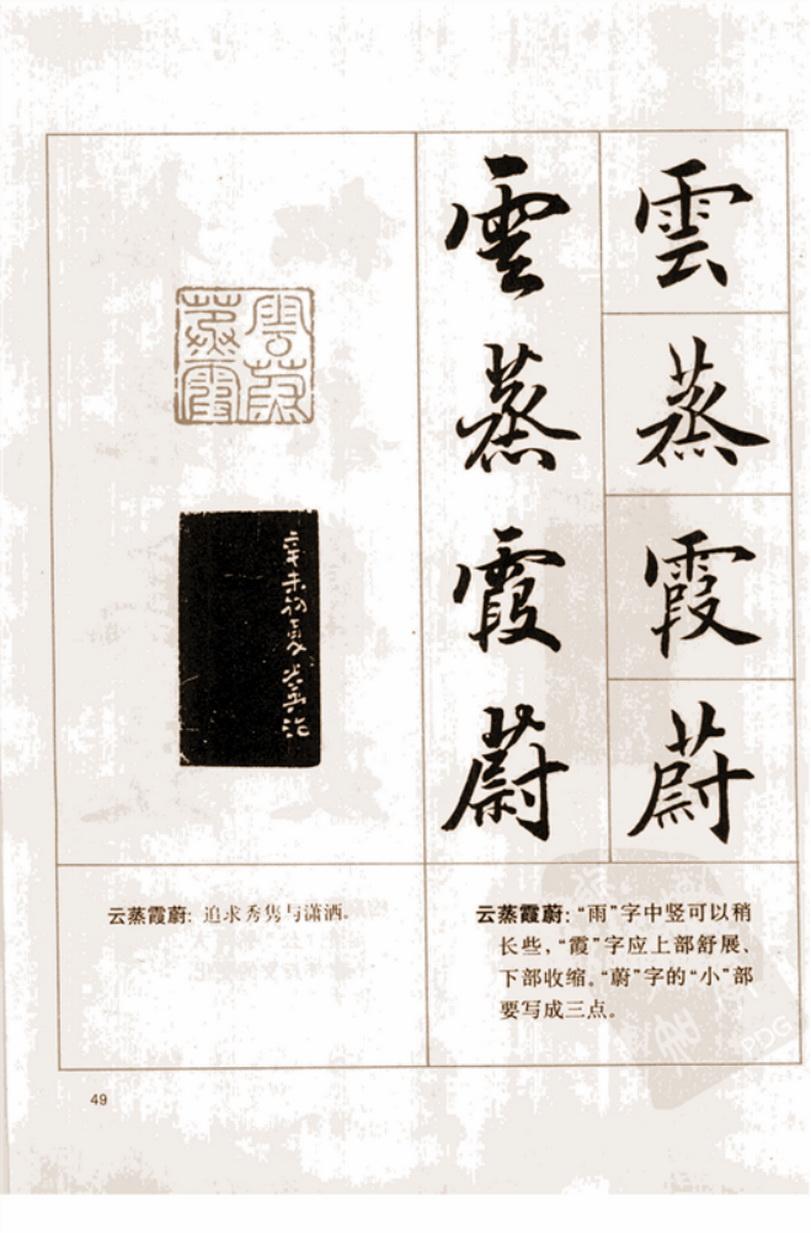 雲蒸霞蔚
雲
蒸
霞
蔚
雲蒸霞蔚
辛未初夏
云蒸霞蔚：追求秀隽与潇洒。
云蒸霞蔚：“雨”字中竖可以稍
长些，“霞”字应上部舒展、
下部收缩。“蔚”字的“小”部
要写成三点。
PDG
49